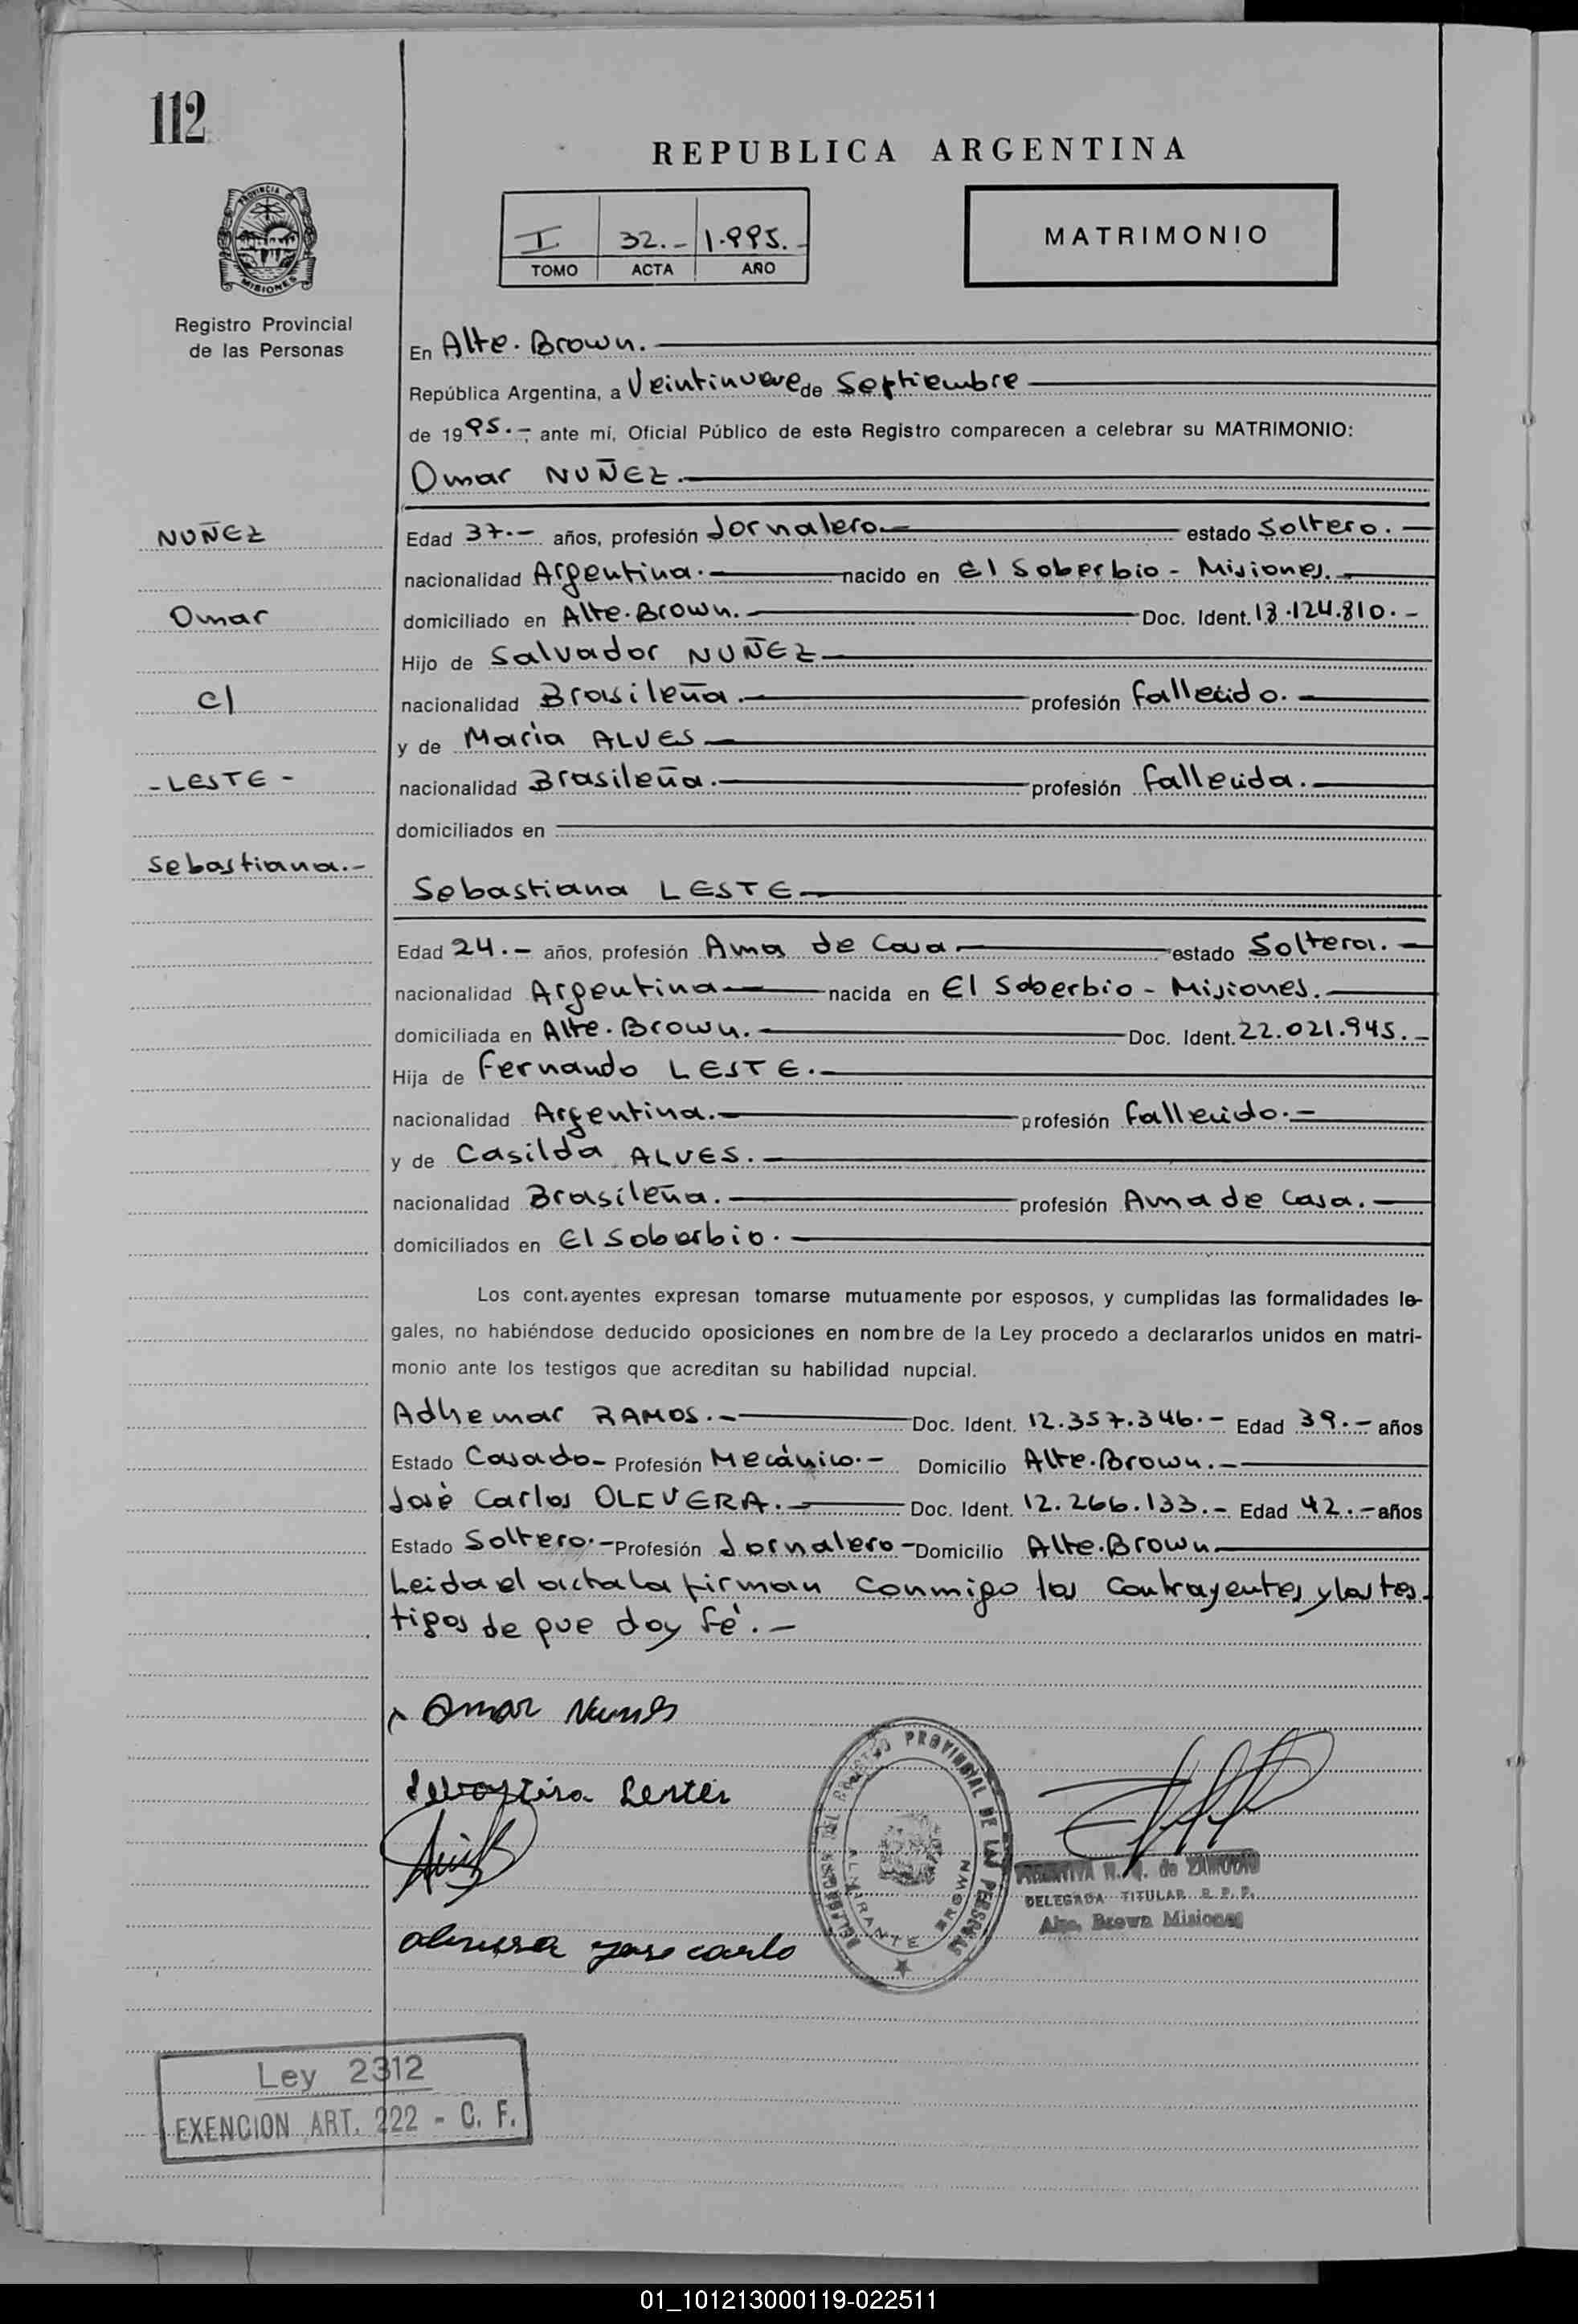 112
REPUBLICA ARGENTINA
PROVINCIA DE
MISIONES
I 32.- 1.995.-
TOMO ACTA AÑO
MATRIMONIO
Registro Provincial
de las Personas
En Alte. Brown.
República Argentina, a Veintinueve de Septiembre
de 1995.-, ante mí, Oficial Público de este Registro comparecen a celebrar su MATRIMONIO:
Omar NUÑEZ.
NUÑEZ
Omar
c/
- LESTE -
Sebastiana.-
Edad 37.- años, profesión Jornalero.- estado Soltero.-
nacionalidad Argentina.- nacido en El Soberbio - Misiones.-
domiciliado en Alte. Brown.- Doc. Ident. 13.124.810.-
Hijo de Salvador NUÑEZ
nacionalidad Brasileña.- profesión fallecido.-
y de María ALVES
nacionalidad Brasileña.- profesión fallecida.-
domiciliados en
Sebastiana LESTE
Edad 24.- años, profesión Ama de Casa.- estado Soltera.-
nacionalidad Argentina nacida en El Soberbio - Misiones.
domiciliada en Alte. Brown.- Doc. Ident. 22.021.945.-
Hija de Fernando LESTE.-
nacionalidad Argentina.- profesión fallecido.-
y de Casilda ALVES.-
nacionalidad Brasileña.- profesión Ama de Casa.-
domiciliados en El Soberbio.-
Los cont.ayentes expresan tomarse mutuamente por esposos, y cumplidas las formalidades le-
gales, no habiéndose deducido oposiciones en nombre de la Ley procedo a declararlos unidos en matri-
monio ante los testigos que acreditan su habilidad nupcial.
Adhemar RAMOS.- Doc. Ident. 12.357.346.- Edad 39.- años
Estado Casado- Profesión Mecánico.- Domicilio Alte. Brown.-
José Carlos OLIVERA.- Doc. Ident. 12.266.133.- Edad 42.- años
Estado Soltero.- Profesión Jornalero- Domicilio Alte. Brown
Leida el acta la firman conmigo los contrayentes y los tes-
tigos de que doy fé.-
x Omar Nunes
DEL REGISTRO PROVINCIAL DE LAS PERSONAS
ALMIRANTE BROWN
de ZAMUDIO
DELEGADA TITULAR R. P. P.
Alte. Brown Misiones
jose carlo
Ley 2312
EXENCION ART. 222 - C. F.
01_101213000119-022511